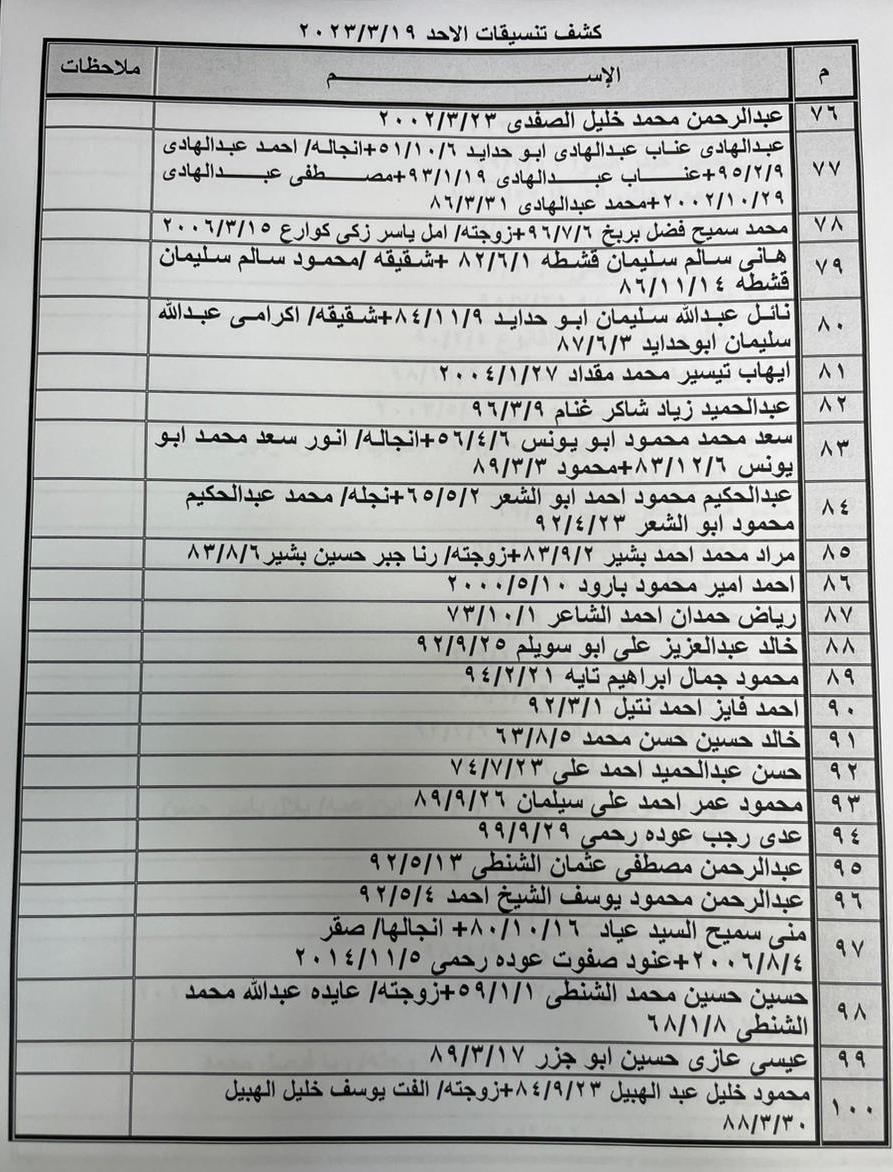 كشف تنسيقات الاحد ٢٠٢٣/٣/١٩
م الإســــــــم ملاحظات
٧٦ عبدالرحمن محمد خليل الصفدى ٢٠٠٢/٣/٢٣
٧٧ عبدالهادى عناب عبدالهادى ابو حدايد ٥١/١٠/٦+انجاله/ احمد عبدالهادى
٩٥/٢/٩+عناب عبدالهادى ٩٣/١/١٩+مصطفى عبدالهادى
٢٠٠٢/١٠/٢٩+محمد عبدالهادى ٨٦/٣/٣١
٧٨ محمد سميح فضل بربخ ٩٦/٧/٦+زوجته/ امل ياسر زكى كوارع ٢٠٠٦/٣/١٥
٧٩ هانى سالم سليمان قشطه ٨٢/٦/١ +شقيقه /محمود سالم سليمان
قشطه ٨٦/١١/١٤
٨٠ نائل عبدالله سليمان ابو حدايد ٨٤/١١/٩+شقيقه/ اكرامى عبدالله
سليمان ابوحدايد ٨٧/٦/٣
٨١ ايهاب تيسير محمد مقداد ٢٠٠٤/١/٢٧
٨٢ عبدالحميد زياد شاكر غنام ٩٦/٣/٩
٨٣ سعد محمد محمود ابو يونس ٥٦/٤/٦+انجاله/ انور سعد محمد ابو
يونس ٨٣/١٢/٦+محمود ٨٩/٣/٣
٨٤ عبدالحكيم محمود احمد ابو الشعر ٦٥/٥/٢+نجله/ محمد عبدالحكيم
محمود ابو الشعر ٩٢/٤/٢٣
٨٥ مراد محمد احمد بشير ٨٣/٩/٢+زوجته/ رنا جبر حسين بشير ٨٣/٨/٦
٨٦ احمد امير محمود بارود ٢٠٠٠/٥/١٠
٨٧ رياض حمدان احمد الشاعر ٧٣/١٠/١
٨٨ خالد عبدالعزيز على ابو سويلم ٩٢/٩/٢٥
٨٩ محمود جمال ابراهيم تايه ٩٤/٢/٢١
٩٠ احمد فايز احمد نتيل ٩٢/٣/١
٩١ خالد حسين حسن محمد ٦٣/٨/٥
٩٢ حسن عبدالحميد احمد على ٧٤/٧/٢٣
٩٣ محمود عمر احمد على سيلمان ٨٩/٩/٢٦
٩٤ عدى رجب عوده رحمى ٩٩/٩/٢٩
٩٥ عبدالرحمن مصطفى عثمان الشنطى ٩٢/٥/١٣
٩٦ عبدالرحمن محمود يوسف الشيخ احمد ٩٢/٥/٤
٩٧ منى سميح السيد عياد ٨٠/١٠/١٦+ انجالها/ صقر
٢٠٠٦/٨/٤+عنود صفوت عوده رحمى ٢٠١٤/١١/٥
٩٨ حسين حسين محمد الشنطى ٥٩/١/١+زوجته/ عايده عبدالله محمد
الشنطى ٦٨/١/٨
٩٩ عيسى عازى حسين ابو جزر ٨٩/٣/١٧
١٠٠ محمود خليل عبد الهبيل ٨٤/٩/٢٣+زوجته/ الفت يوسف خليل الهبيل
٨٨/٣/٣٠